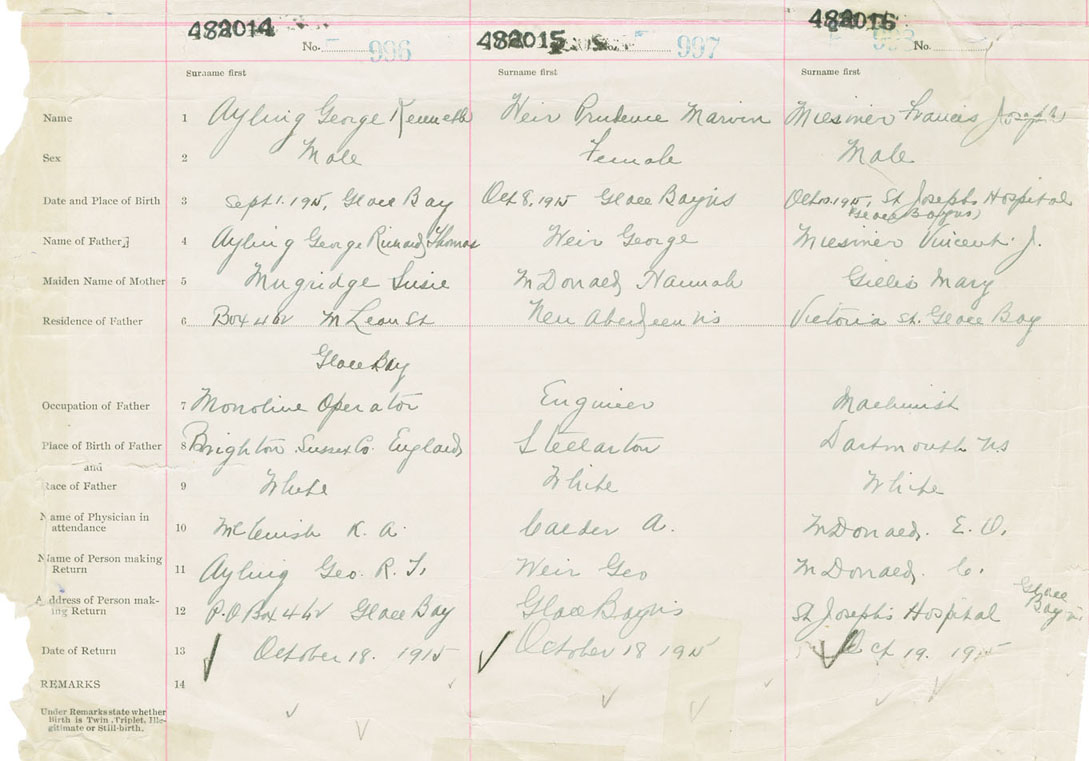 482014 482015
No. 996 997 No.
Surname first Surname first Surname first
Name 1 Ayling George Kenneth Weir Prudence Marvin Mesmer Francis Joseph
Sex 2 Male Female Male
Date and Place of Birth 3 Sept. 1. 1915, Glace Bay Oct 8, 1915 Glace Bay NS 1915, St Josephs Hospital
(Glace Bay NS)
Name of Father 4 Ayling George Richard Thomas Weir George Mesmer Vincent J.
Maiden Name of Mother 5 Mugridge Susie McDonald Hannah Gillis Mary
Residence of Father 6 Box 462 McLean St New Aberdeen NS Victoria St. Glace Bay
Glace Bay
Occupation of Father 7 Monoline Operator Engineer Machinist
Place of Birth of Father 8 Brighton Sussex Co. England Stellarton Dartmouth NS
and
Race of Father 9 White White White
Name of Physician in
attendance 10 K. A. Calder A. McDonald. E. O.
Name of Person making
Return 11 Ayling Geo. R. T. Weir Geo McDonald. C.
Address of Person mak-
ing Return 12 P.O Box 462 Glace Bay Glace Bay NS St Josephs Hospital Glace Bay NS
Date of Return 13 October 18. 1915 October 18 1915 Oct 19. 1915
REMARKS 14
Under Remarks state whether
Birth is Twin, Triplet, Ille-
gitimate or Still-birth.